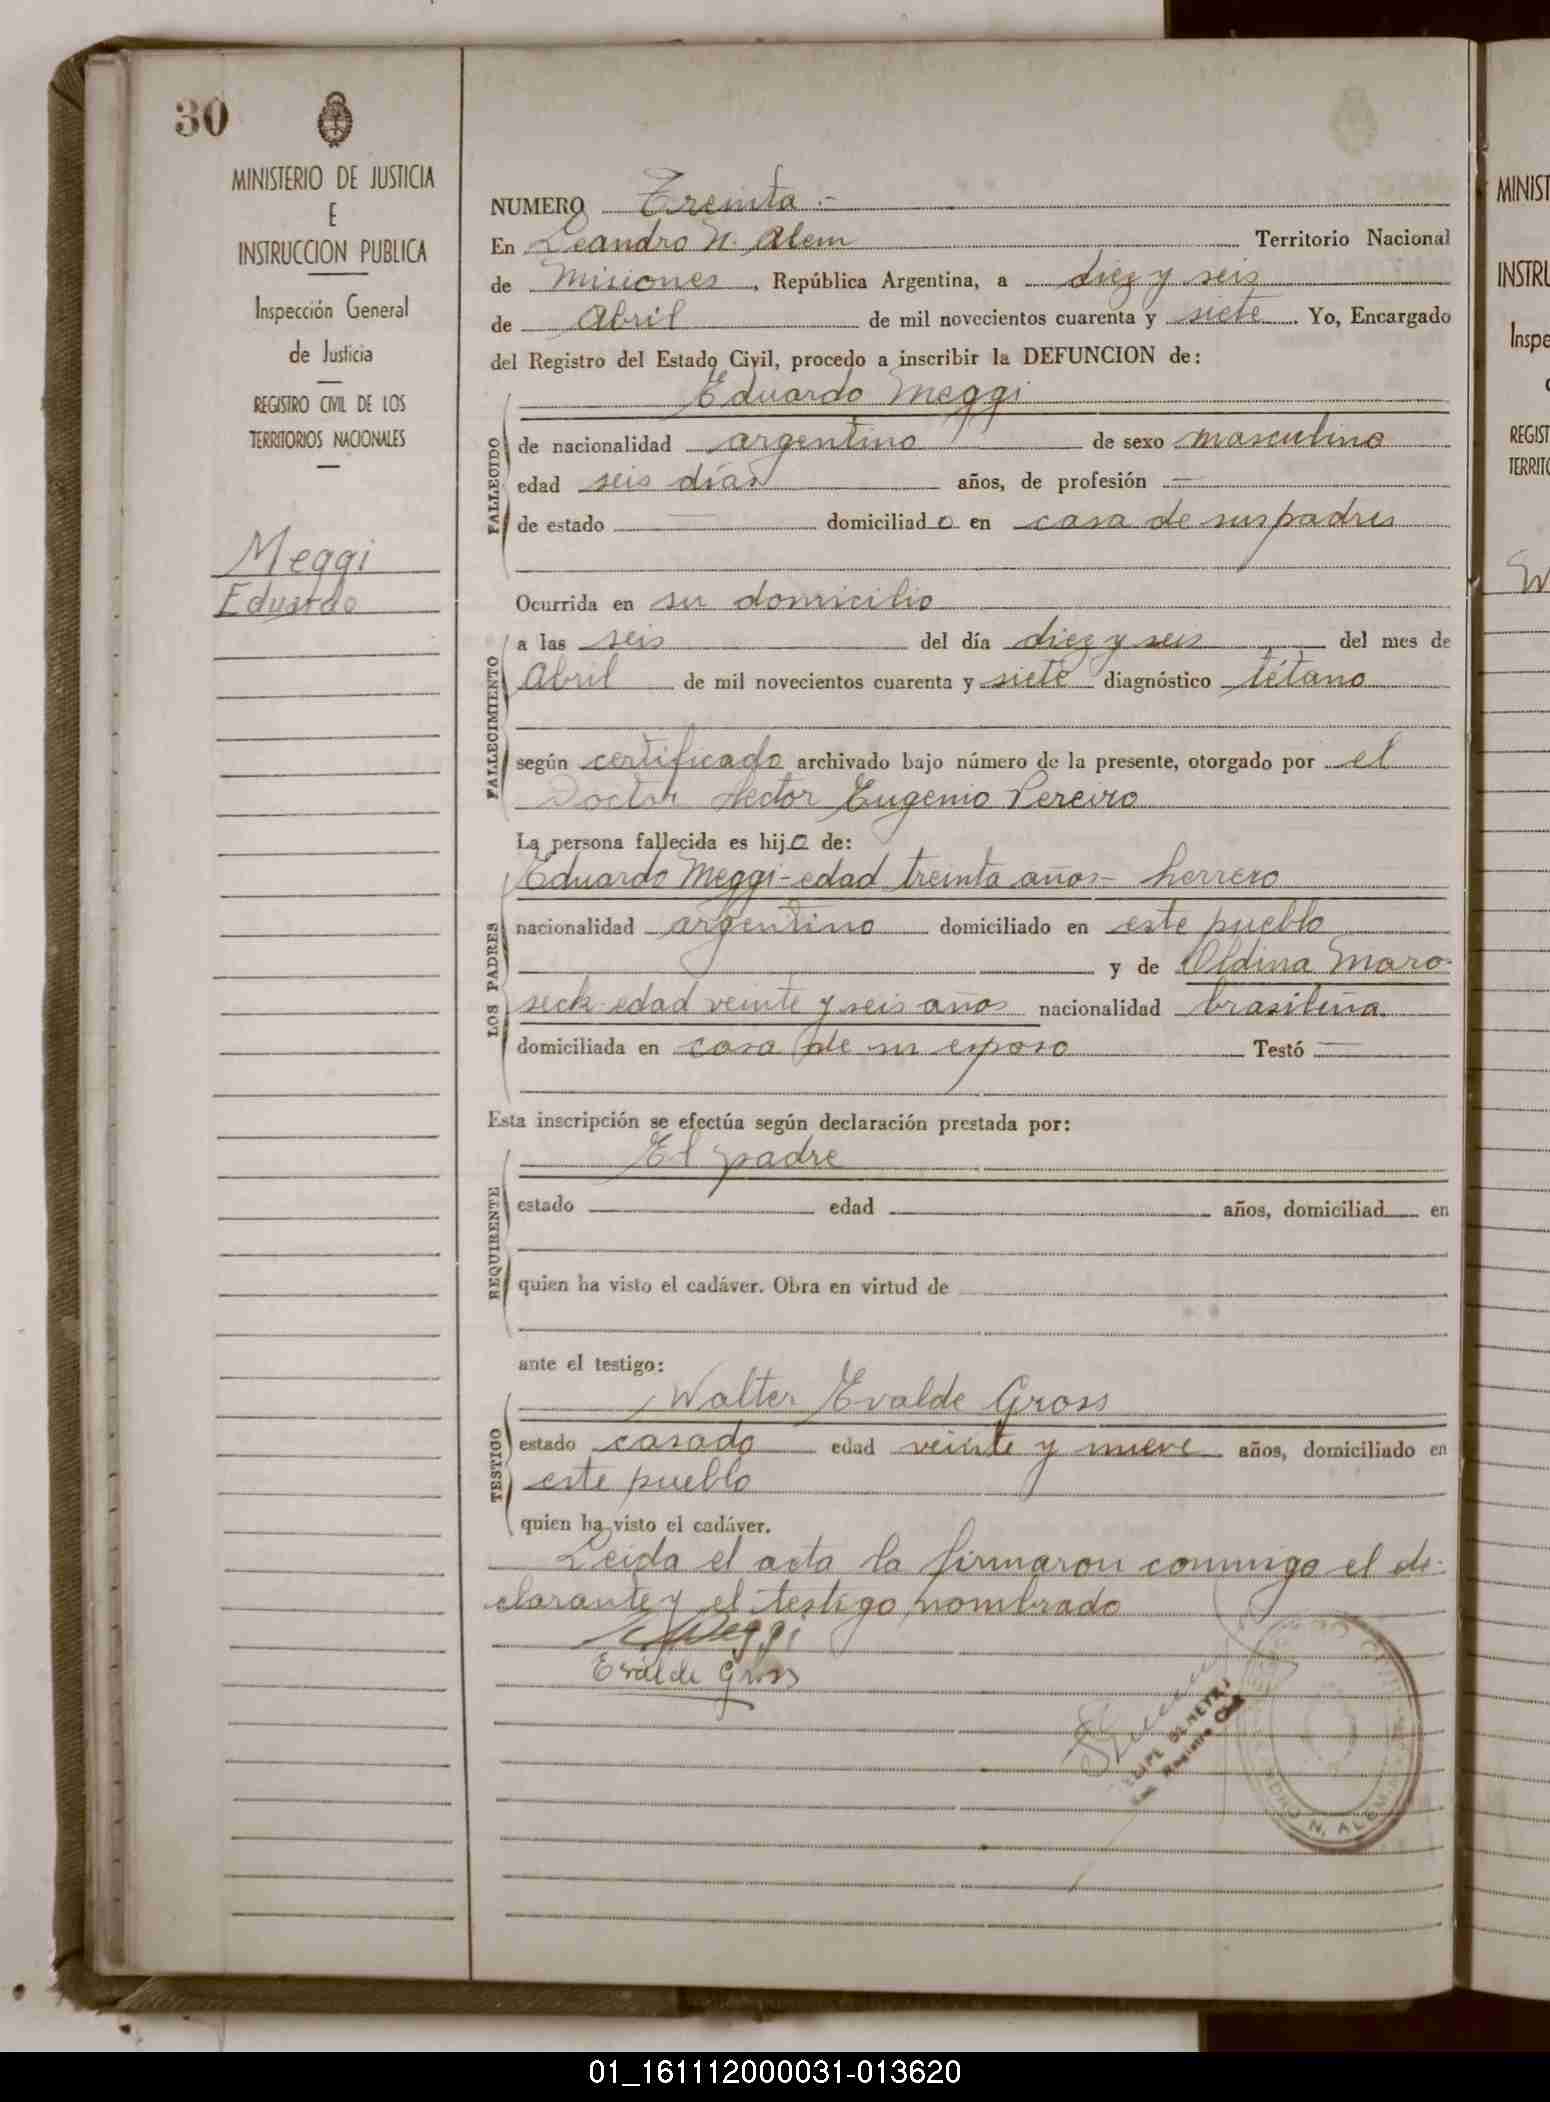 30
MINISTERIO DE JUSTICIA
E
INSTRUCCION PUBLICA
Inspección General
de Justicia
REGISTRO CIVIL DE LOS
TERRITORIOS NACIONALES
Meggi
Eduardo
NUMERO Treinta.-
En Leandro N. Alem Territorio Nacional
de Misiones, República Argentina, a diez y seis
de Abril de mil novecientos cuarenta y siete. Yo, Encargado
del Registro del Estado Civil, procedo a inscribir la DEFUNCION de:
FALLECIDO
Eduardo Meggi
de nacionalidad argentino de sexo masculino
edad seis días años, de profesión —
de estado — domiciliado en casa de sus padres
Ocurrida en su domicilio
FALLECIMIENTO
a las seis del día diez y seis del mes de
Abril de mil novecientos cuarenta y siete diagnóstico tétano
según certificado archivado bajo número de la presente, otorgado por el
Doctor Hector Eugenio Pereiro
La persona fallecida es hijo de:
LOS PADRES
Eduardo Meggi - edad treinta años - herrero
nacionalidad argentino domiciliado en este pueblo
y de Oldina Maro-
seck edad veinte y seis años nacionalidad brasileña
domiciliada en casa de su esposo Testó —
Esta inscripción se efectúa según declaración prestada por:
REQUIRENTE
El padre
estado edad años, domiciliad en
quien ha visto el cadáver. Obra en virtud de
ante el testigo:
TESTIGO
Walter Evalde Gross
estado casado edad veinte y nueve años, domiciliado en
este pueblo
quien ha visto el cadáver.
Leida el acta la firmaron conmigo el de-
clarante y el testigo nombrado
E Meggi
Evalde Gross
Registro Civil
N. ALEM
MINIST
INSTRU
Inspe
REGIST
TERRITO
01_161112000031-013620